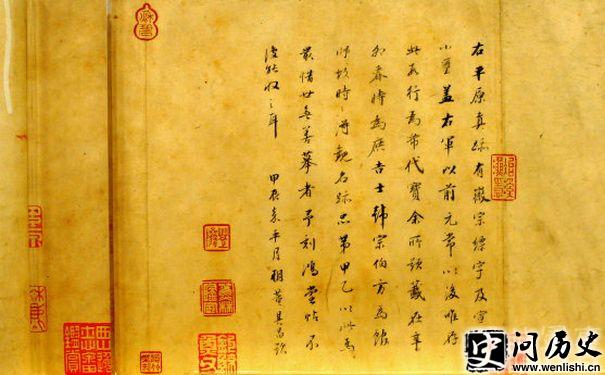 右平原真跡有徽宗標字及宣
小璽蓋右軍以前元常以後唯存
此數行為希代寶余所題籤在辛
卯春時為庶吉士韓宗伯方為館
師故時〻得觀名跡品第甲乙以此為
最惜世無善摹者予刻鴻堂帖不
復能收之耳 甲辰嘉平月朔董其昌跋
問历史
www.wenlishi.cn